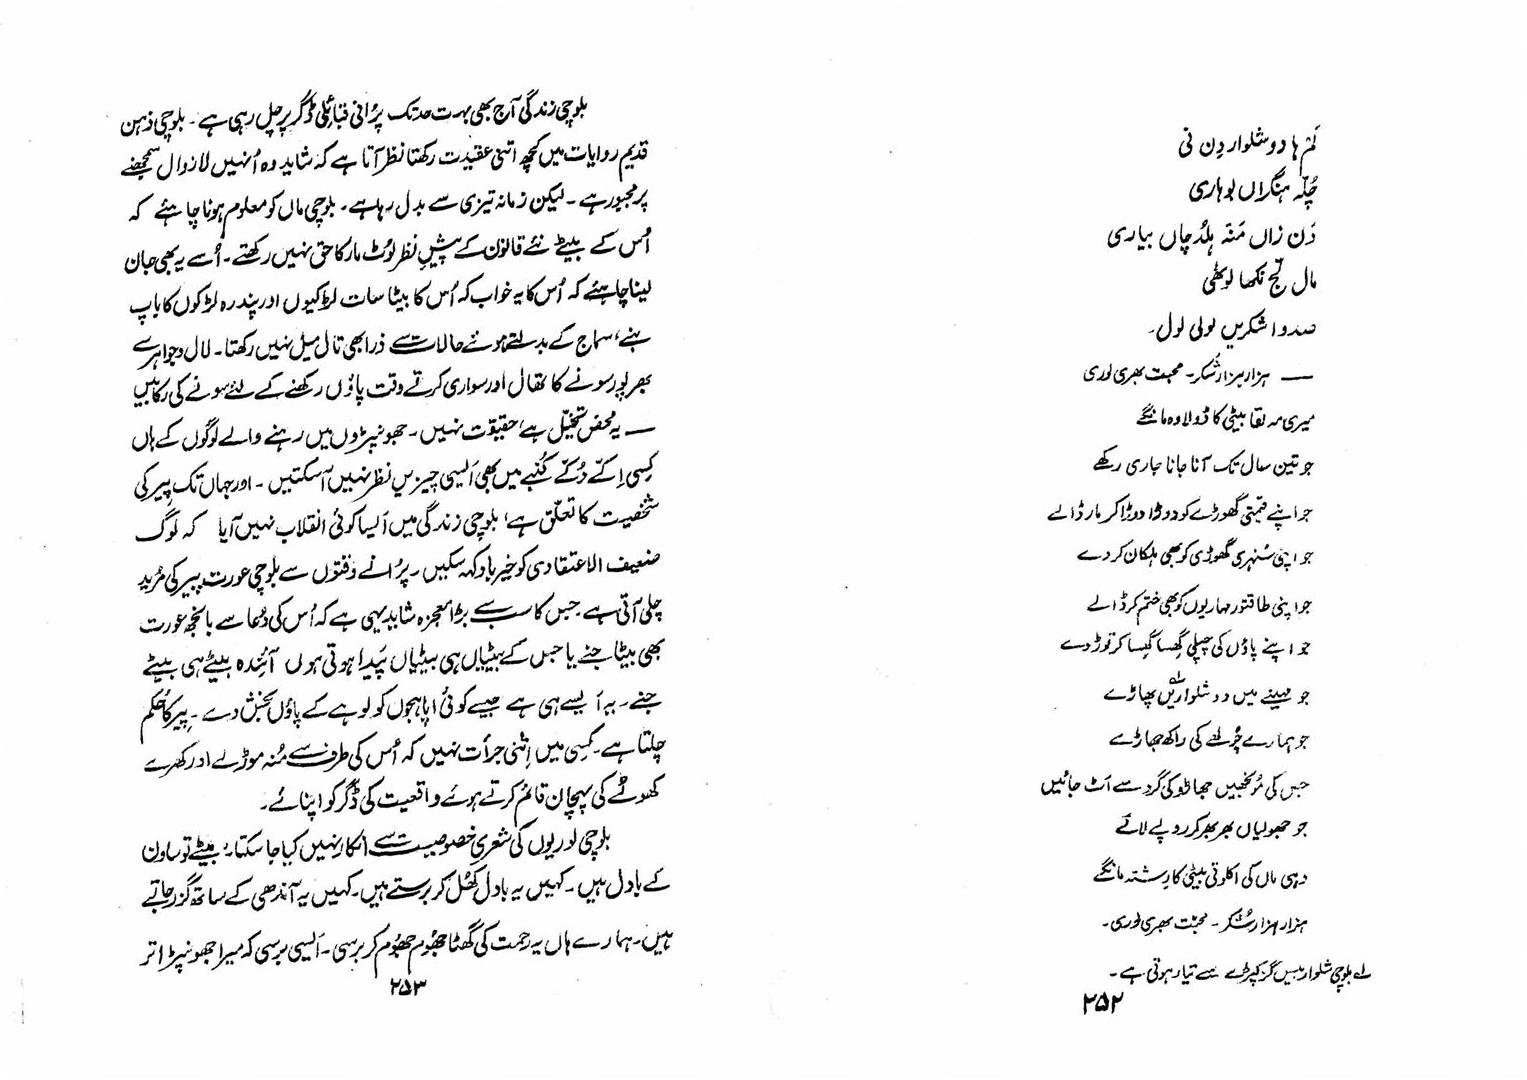 لَمّ ہا دو شلوار دِن نی
چُلّہ ہنگراں بوہاری
دَن زاں مَنَہ ہلڈچاں بیاری
مال گج نکھا لوٹھی
صدوا شکریں لولی لول۔
— ہزار ہزار شُکر۔ محبت بھری لوری
میری مہ لقا بیٹی کا ڈولا وہ مانگے
جو تین سال تک آنا جانا جاری رکھے
جو اپنے قیمتی گھوڑے کو دوڑا دوڑا کر مار ڈالے
جو اپنی سُنہری گھوڑی کو بھی ہلکان کر دے
جو اپنی طاقتور مہاریوں کو بھی ختم کر ڈالے
جو اپنے پاؤں کی چپلی گھسا گھسا کر توڑ دے
جو مہینے میں دو شلواریں؎۱ پھاڑے
جو ہمارے چُولھے کی راکھ جھاڑے
جس کی مُونچھیں جھاڑو کی گرد سے اَٹ جائیں
جو جھولیاں بھر بھر کر روپے لائے
وہی ماں کی اکلوتی بیٹی کا رشتہ مانگے
ہزار ہزار شُکر۔ محبّت بھری لوری۔
؎۱ بلوچی شلوار بیس گز کپڑے سے تیار ہوتی ہے۔
۲۵۲
بلوچی زندگی آج بھی بہت حد تک پُرانی قبائلی ڈگر پر چل رہی ہے۔ بلوچی ذہن
قدیم روایات میں کچھ اتنی عقیدت رکھتا نظر آتا ہے کہ شاید وہ اُنہیں لازوال سمجھنے
پر مجبور ہے۔ لیکن زمانہ تیزی سے بدل رہا ہے۔ بلوچی ماں کو معلوم ہونا چاہئے کہ
اُس کے بیٹے نئے قانون کے پیشِ نظر لُوٹ مار کا حق نہیں رکھتے۔ اُسے یہ بھی جان
لینا چاہئے کہ اُس کا یہ خواب کہ اُس کا بیٹا سات لڑکیوں اور پندرہ لڑکوں کا باپ
بنے، سماج کے بدلتے ہوئے حالات سے ذرا بھی تال میل نہیں رکھتا۔ لال و جواہر سے
بھرپور سونے کا تھال اور سواری کرتے وقت پاؤں رکھنے کے لئے سونے کی رکابیں
— یہ محض تخیّل ہے، حقیقت نہیں۔ جھونپڑوں میں رہنے والے لوگوں کے ہاں
کِسی اِکّے دُکّے کُنبے میں بھی اَیسی چیزیں نظر نہیں آسکتیں۔ اور جہاں تک پیر کی
شخصیت کا تعلّق ہے، بلوچی زندگی میں اَیسا کوئی انقلاب نہیں آیا کہ لوگ
ضعیف الاعتقادی کو خیرباد کہہ سکیں۔ پُرانے وقتوں سے بلوچی عورت پیر کی مُرید
چلی آتی ہے جس کا سب سے بڑا معجزہ شاید یہی ہے کہ اُس کی دُعا سے بانجھ عورت
بھی بیٹا جنے یا جس کے بیٹیاں ہی بیٹیاں پَیدا ہوتی ہوں آئندہ بیٹے ہی بیٹے
جنے۔ یہ اَیسے ہی ہے جیسے کوئی اپاہجوں کو لوہے کے پاؤں بخش دے۔ پیر کا حُکم
چلتا ہے۔ کِسی میں اِتنی جرأت نہیں کہ اُس کی طرف سے مُنہ موڑ لے اور کھرے
کھوٹے کی پہچان قائم کرتے ہوئے واقعیت کی ڈگر کو اپنائے۔
بلوچی لوریوں کی شعری خصوصیت سے انکار نہیں کیا جا سکتا۔ بیٹے تو ساون
کے بادل ہیں۔ کہیں یہ بادل کھُل کر برستے ہیں۔ کہیں یہ آندھی کے ساتھ گزر جاتے
ہیں۔ ہمارے ہاں یہ رحمت کی گھٹا جھُوم جھُوم کر برسی۔ اَیسی برسی کہ میرا جھونپڑا تر
۲۵۳